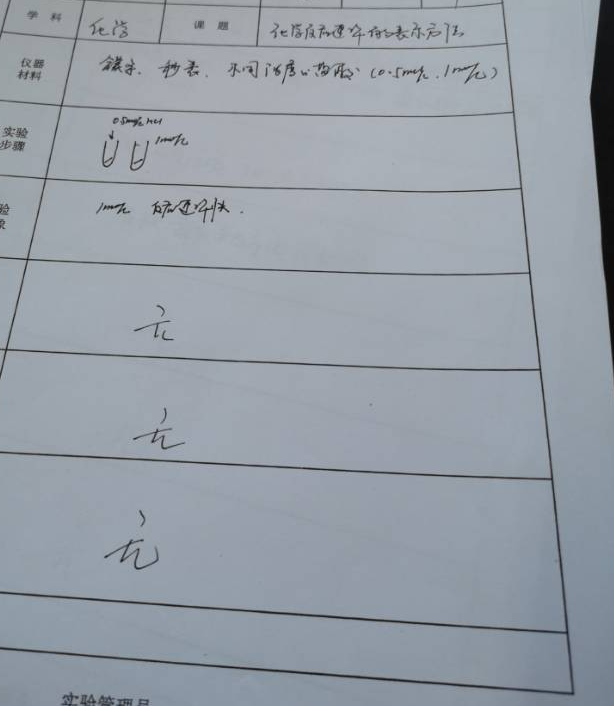 学 科 化学 课 题 化学反应速率的表示方法
仪器
材料
镁条、秒表、不同浓度的盐酸 (0.5mol/L、1mol/L)
实验
步骤
0.5mol/L HCl
1mol/L
验
1mol/L 反应速率快.
无
无
无
实验管理员